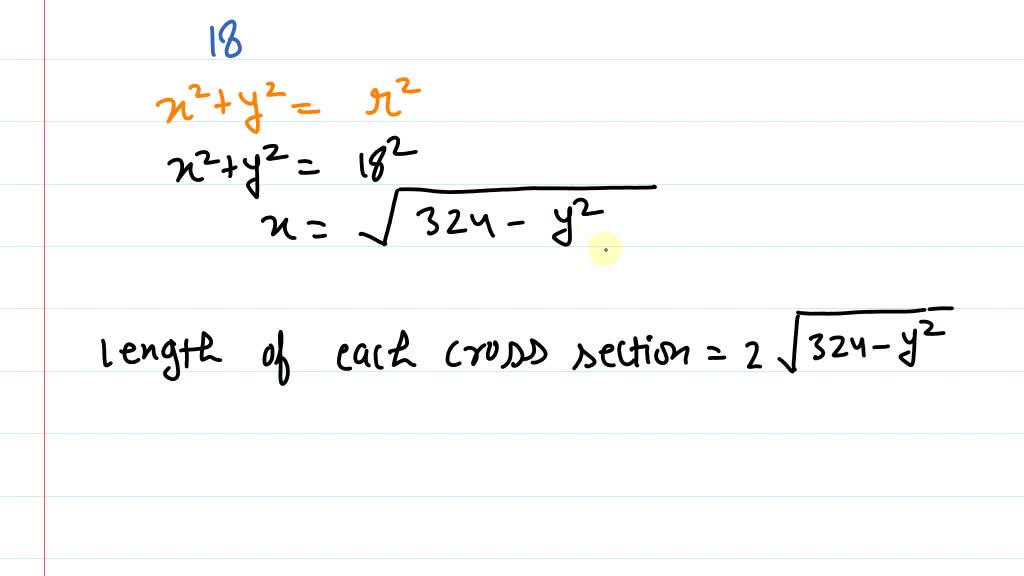 18
x² + y² = r²
x² + y² = 18²
x = √(324 - y²)
length of each cross section = 2 √(324 - y²)